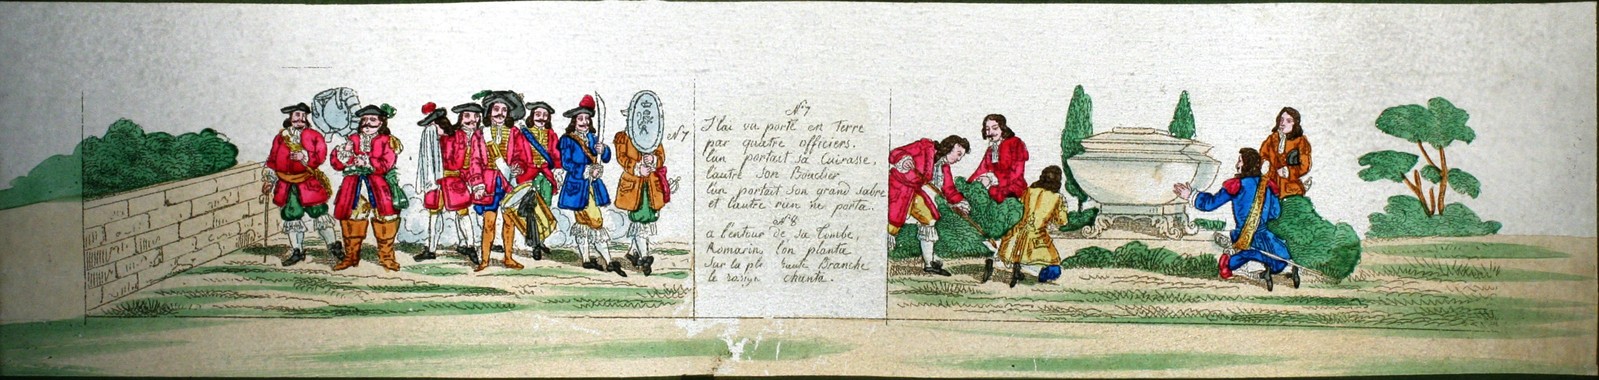 N° 7
J'lai vu porté en terre
par quatre officiers,
l'un portait sa Cuirasse,
l'autre son Bouclier
l'un portait son grand sabre
et l'autre rien ne porta.
N° 8
a l'entour de sa tombe,
Romarin, l'on planta
Sur la pls haute Branche
le chanta.
N° 7